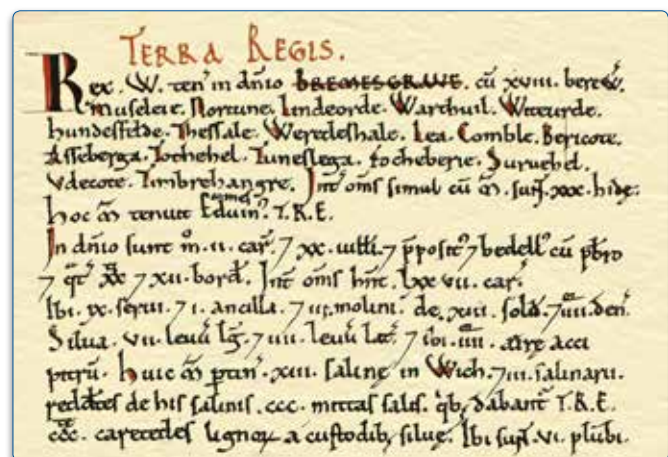 TERRA REGIS.
Rex. W. ten' in dn̄io BREMESGRAVE. cū xviii. berew̄.
Museleie. Nortune. Lindeorde. Warthuil. Witeurde.
hundesfelde. Thessale. Weredeshale. Lea. Comble. Bericote.
Asseberga. Tochehel. Tuneslega. Focheberie. Suruehel.
Vdecote. Timbrehangre. Int̄ om̄s simul cū m̄. sunt xxx. hidę.
hoc m̄ tenuit Eduin' comes T.R.E.
In dn̄io sunt m̊. ii. car' 7 xx. uilli 7 p̄posit' 7 bedell' cū pb̄ro
7 xii. bord'. Int̄ om̄s hn̄t. lxx vii. car'.
Ibi. ix. serui. 7 i. ancilla. 7 iii. molini de. xiii. solid. 7 iiii. den'
Silua. vii. leuu' lḡ. 7 iiii. leuu' lat' 7 ibi. iiii. aire acci
pitrū. huic m̄ ptin'. xiii. salinę in Wich. 7 iii. salinarii.
reddētes de his salinis. ccc. mittas salis. qb; dabant' T.R.E.
ccc. caretedes lignoꝝ a custodib; siluę. Ibi sunt. vi. plūbi.